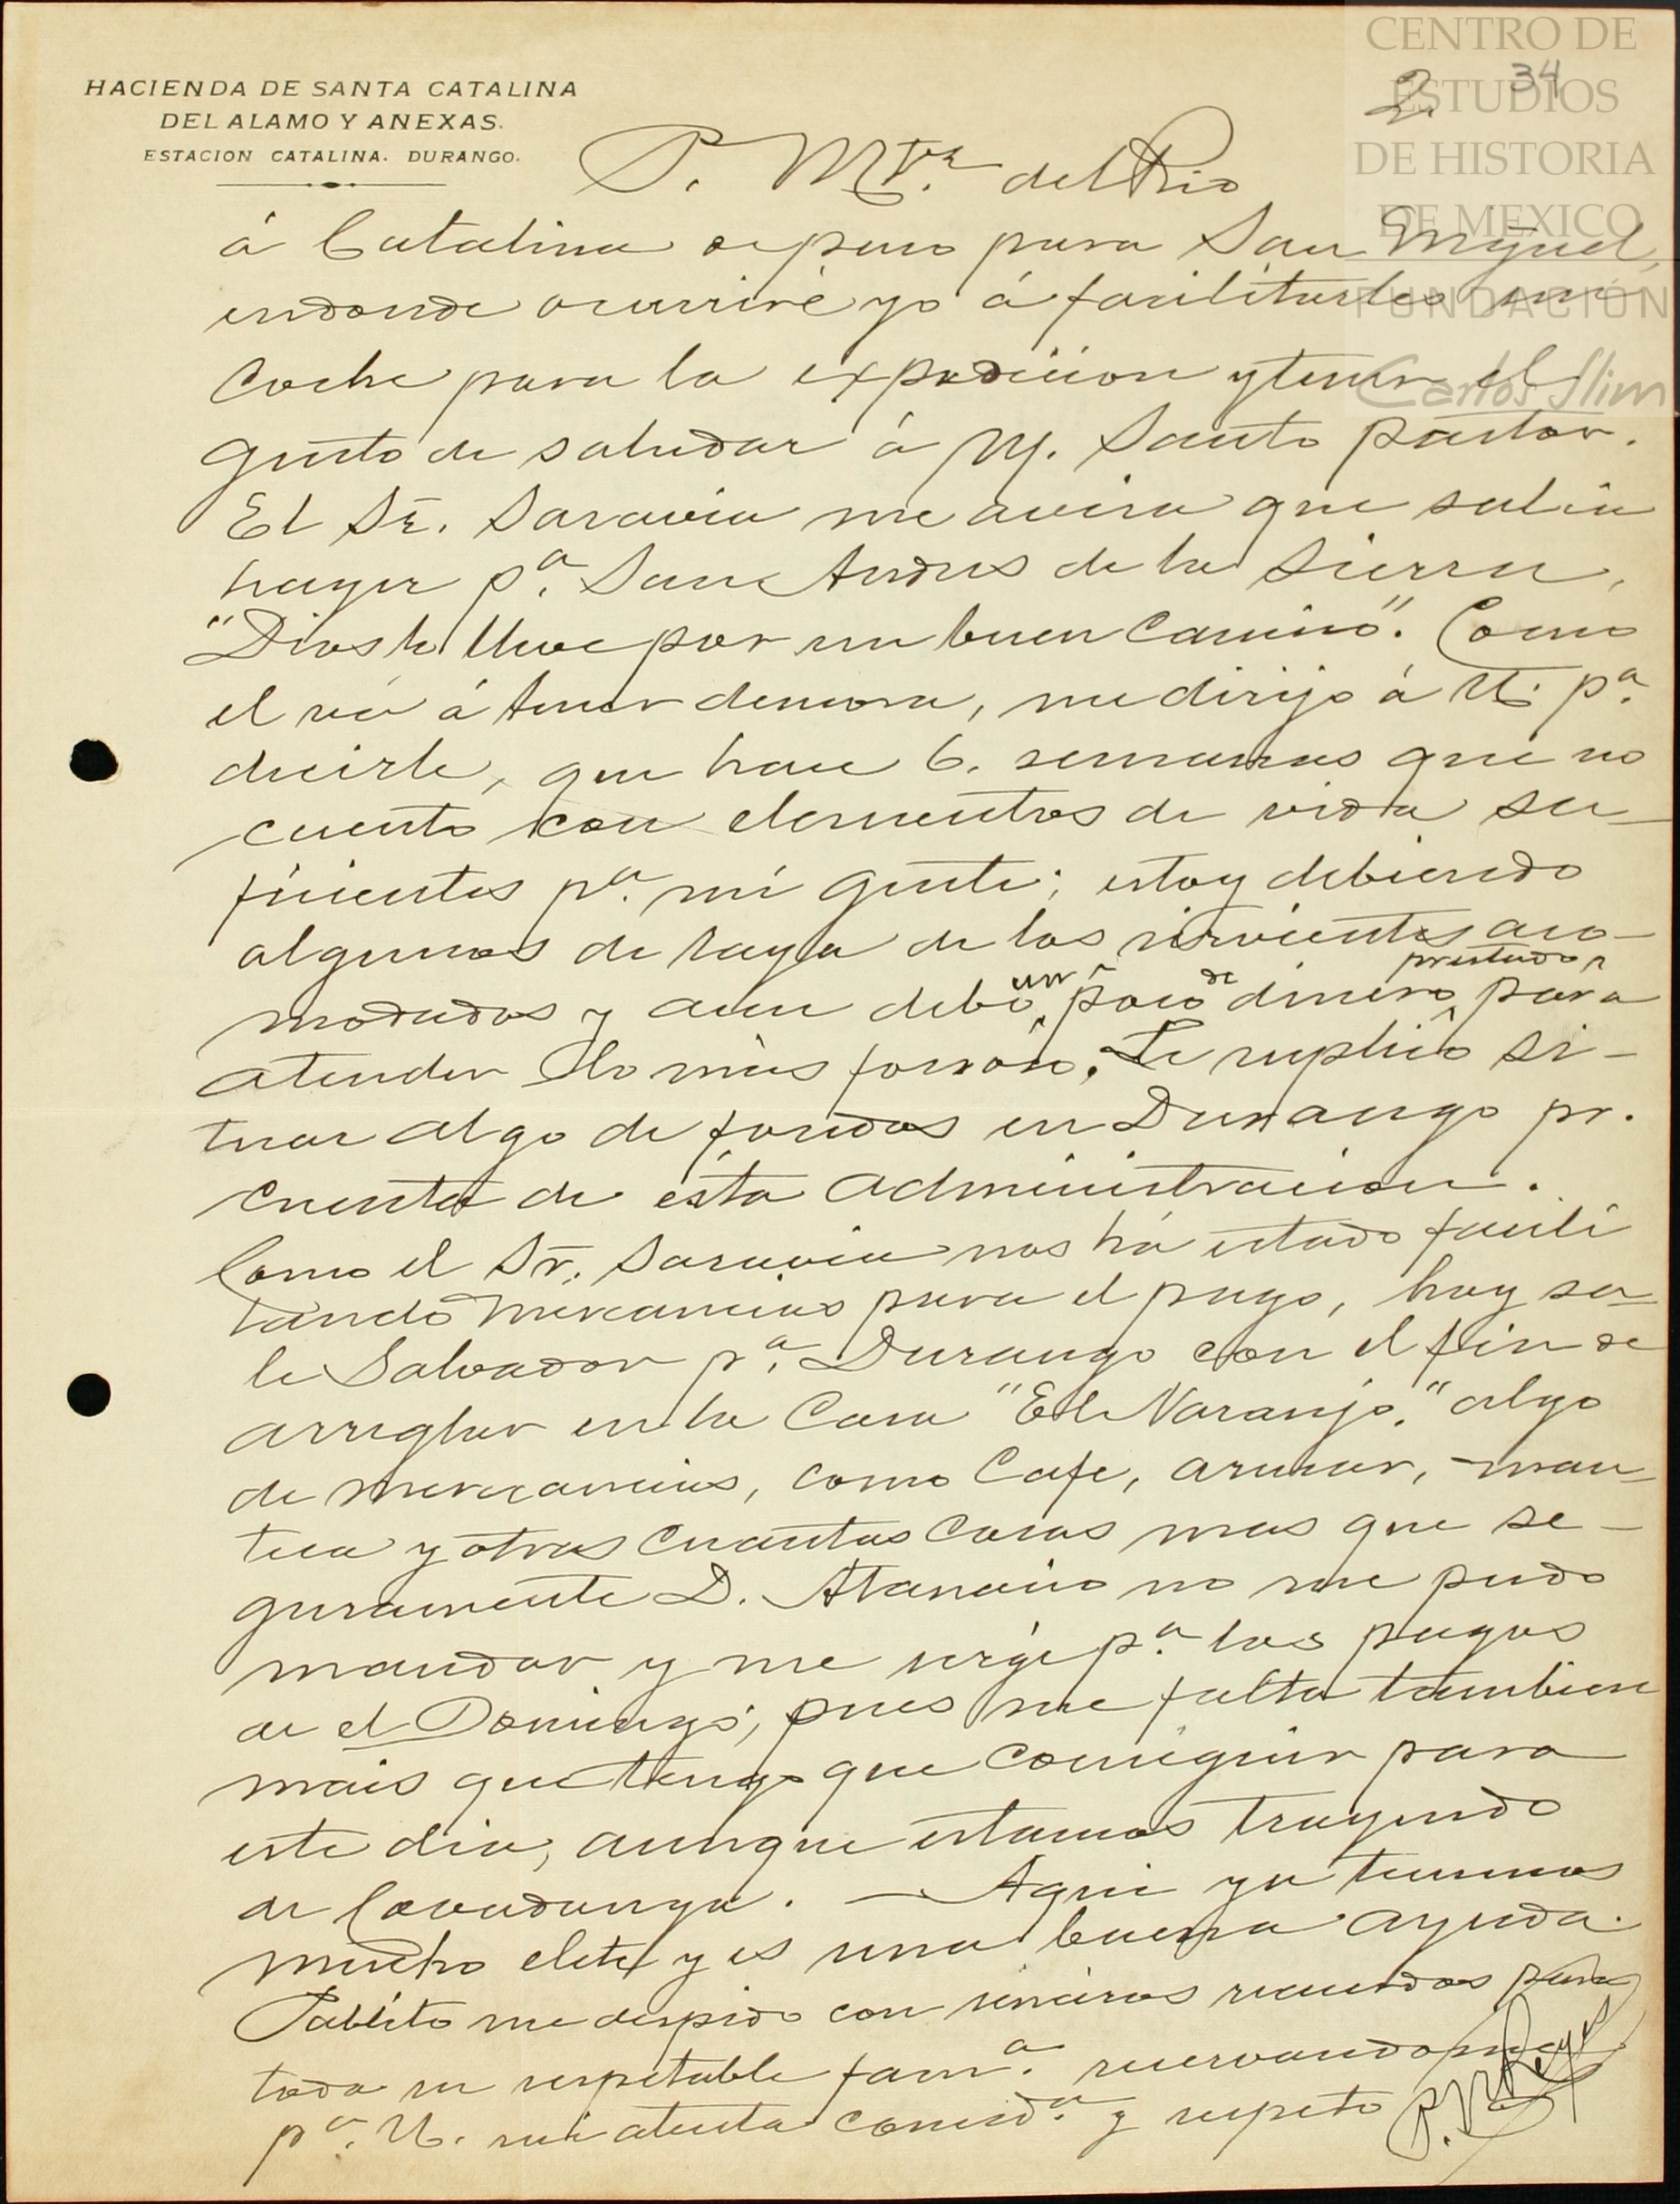 CENTRO DE
ESTUDIOS
DE HISTORIA
DE MEXICO
FUNDACIÓN
Carlos Slim
2. 34
HACIENDA DE SANTA CATALINA
DEL ALAMO Y ANEXAS.
ESTACION CATALINA. DURANGO.
P. Mtz. del Rio
á Catalina de paso para San Miguel,
endonde ocurriré yo á facilitarles un
Coche para la expedicion y tener el
gusto de saludar á N. Santo pastor.
El Sr. Saravia me avisa que salia
hayer pa. San Andres de la Sierra,
"Dios le lleve por un buen Camino". Como
el vá á tener demora, me dirijo á U. pa.
decirle, que hace 6. semanas que no
cuento con elementos de vida su-
ficientes pa. mi gente; estoy debiendo
algunos de raya de los sirvientes aco-
modados y aun debo un poco de dinero prestado, para
atender lo mas forzoso. Le suplico si-
tuar algo de fondos en Durango pr.
cuenta de ésta Administracion.
Como el Sr. Saravia nos há estado facili
tando mercancias para el pago, hoy sa-
le Salvador pa. Durango con el fin de
arreglar en la Casa "El Naranjo." algo
de mercancias, como Cafe, azucar, man-
teca y otras cuantas cosas mas que se-
guramente D. Atanacio no me pudo
mandar y me urge pa. los pagos
de el Domingo, pues me falta tambien
mais que tengo que conseguir para
este dia, aunque estamos trayendo
de Covadonga. — Aqui ya tenemos
mucho elote y es una buena ayuda.
Pablito me despido con sinceros recuerdos para
toda su respetable fama. reservandome
pa. U. mi atenta considn. y respeto
P. Reyes